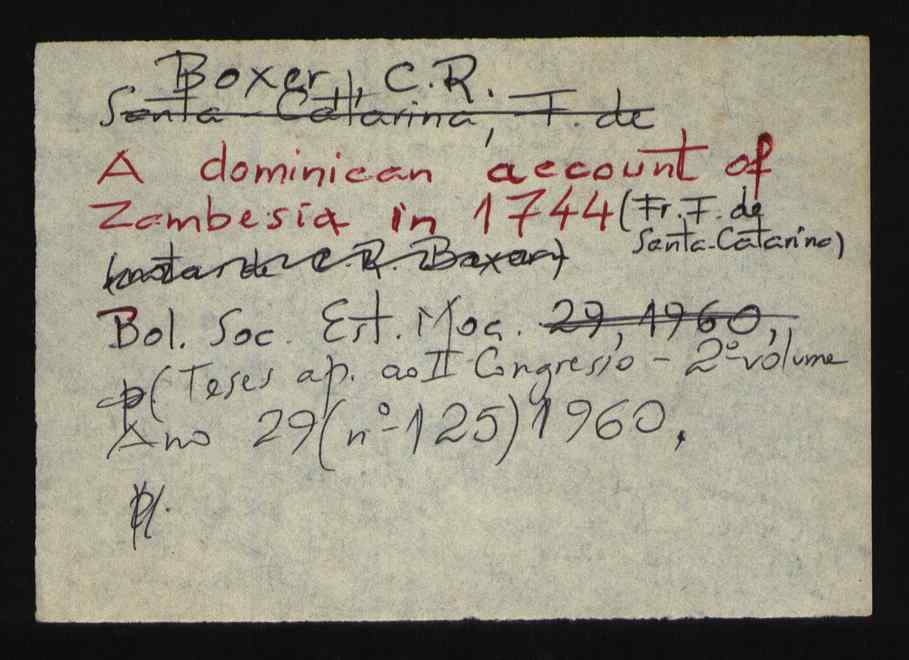 Boxer, C.R.
Santa Catarina, F. de
A dominican account of
Zambesia in 1744 (Fr. F. de
Santa-Catarina)
C.R. Boxer)
Bol. Soc. Est. Moç. 29, 1960,
p (Teses ap. ao II Congresso - 2º volume
Ano 29 (nº 125) 1960,
p.